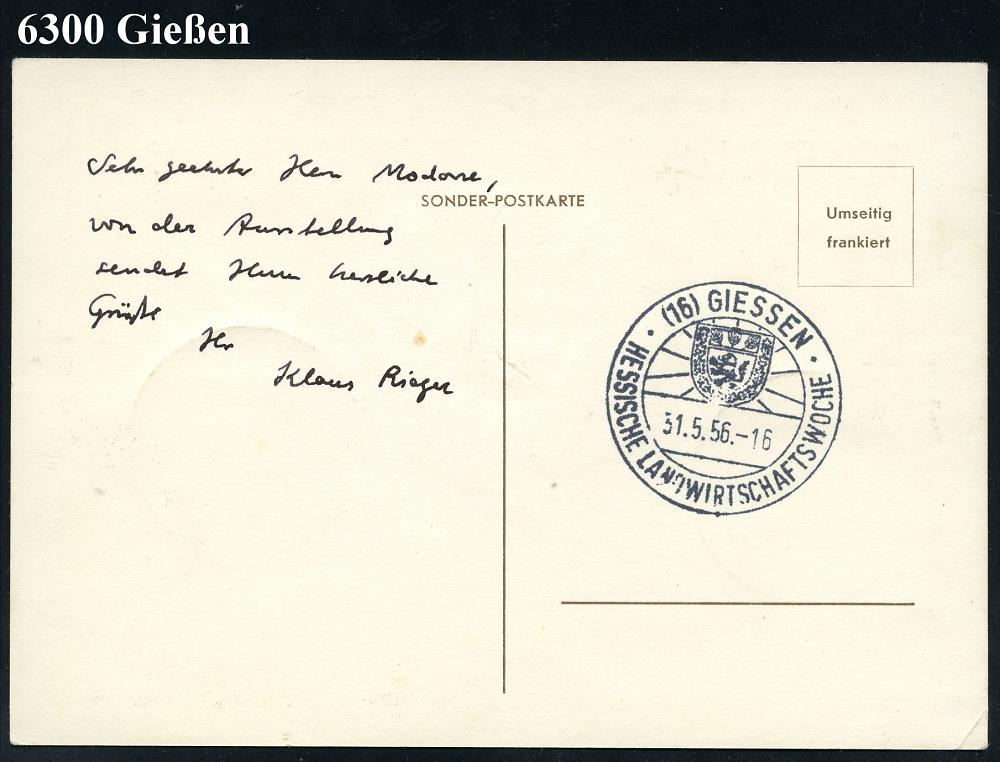 6300 Gießen
Sehr geehrter Herr Modorre,
von der Ausstellung
sendet Ihnen herzliche
Grüße
Ihr
Klaus Rieger
SONDER-POSTKARTE
Umseitig
frankiert
(16) GIESSEN
31.5.56.-16
HESSISCHE LANDWIRTSCHAFTSWOCHE